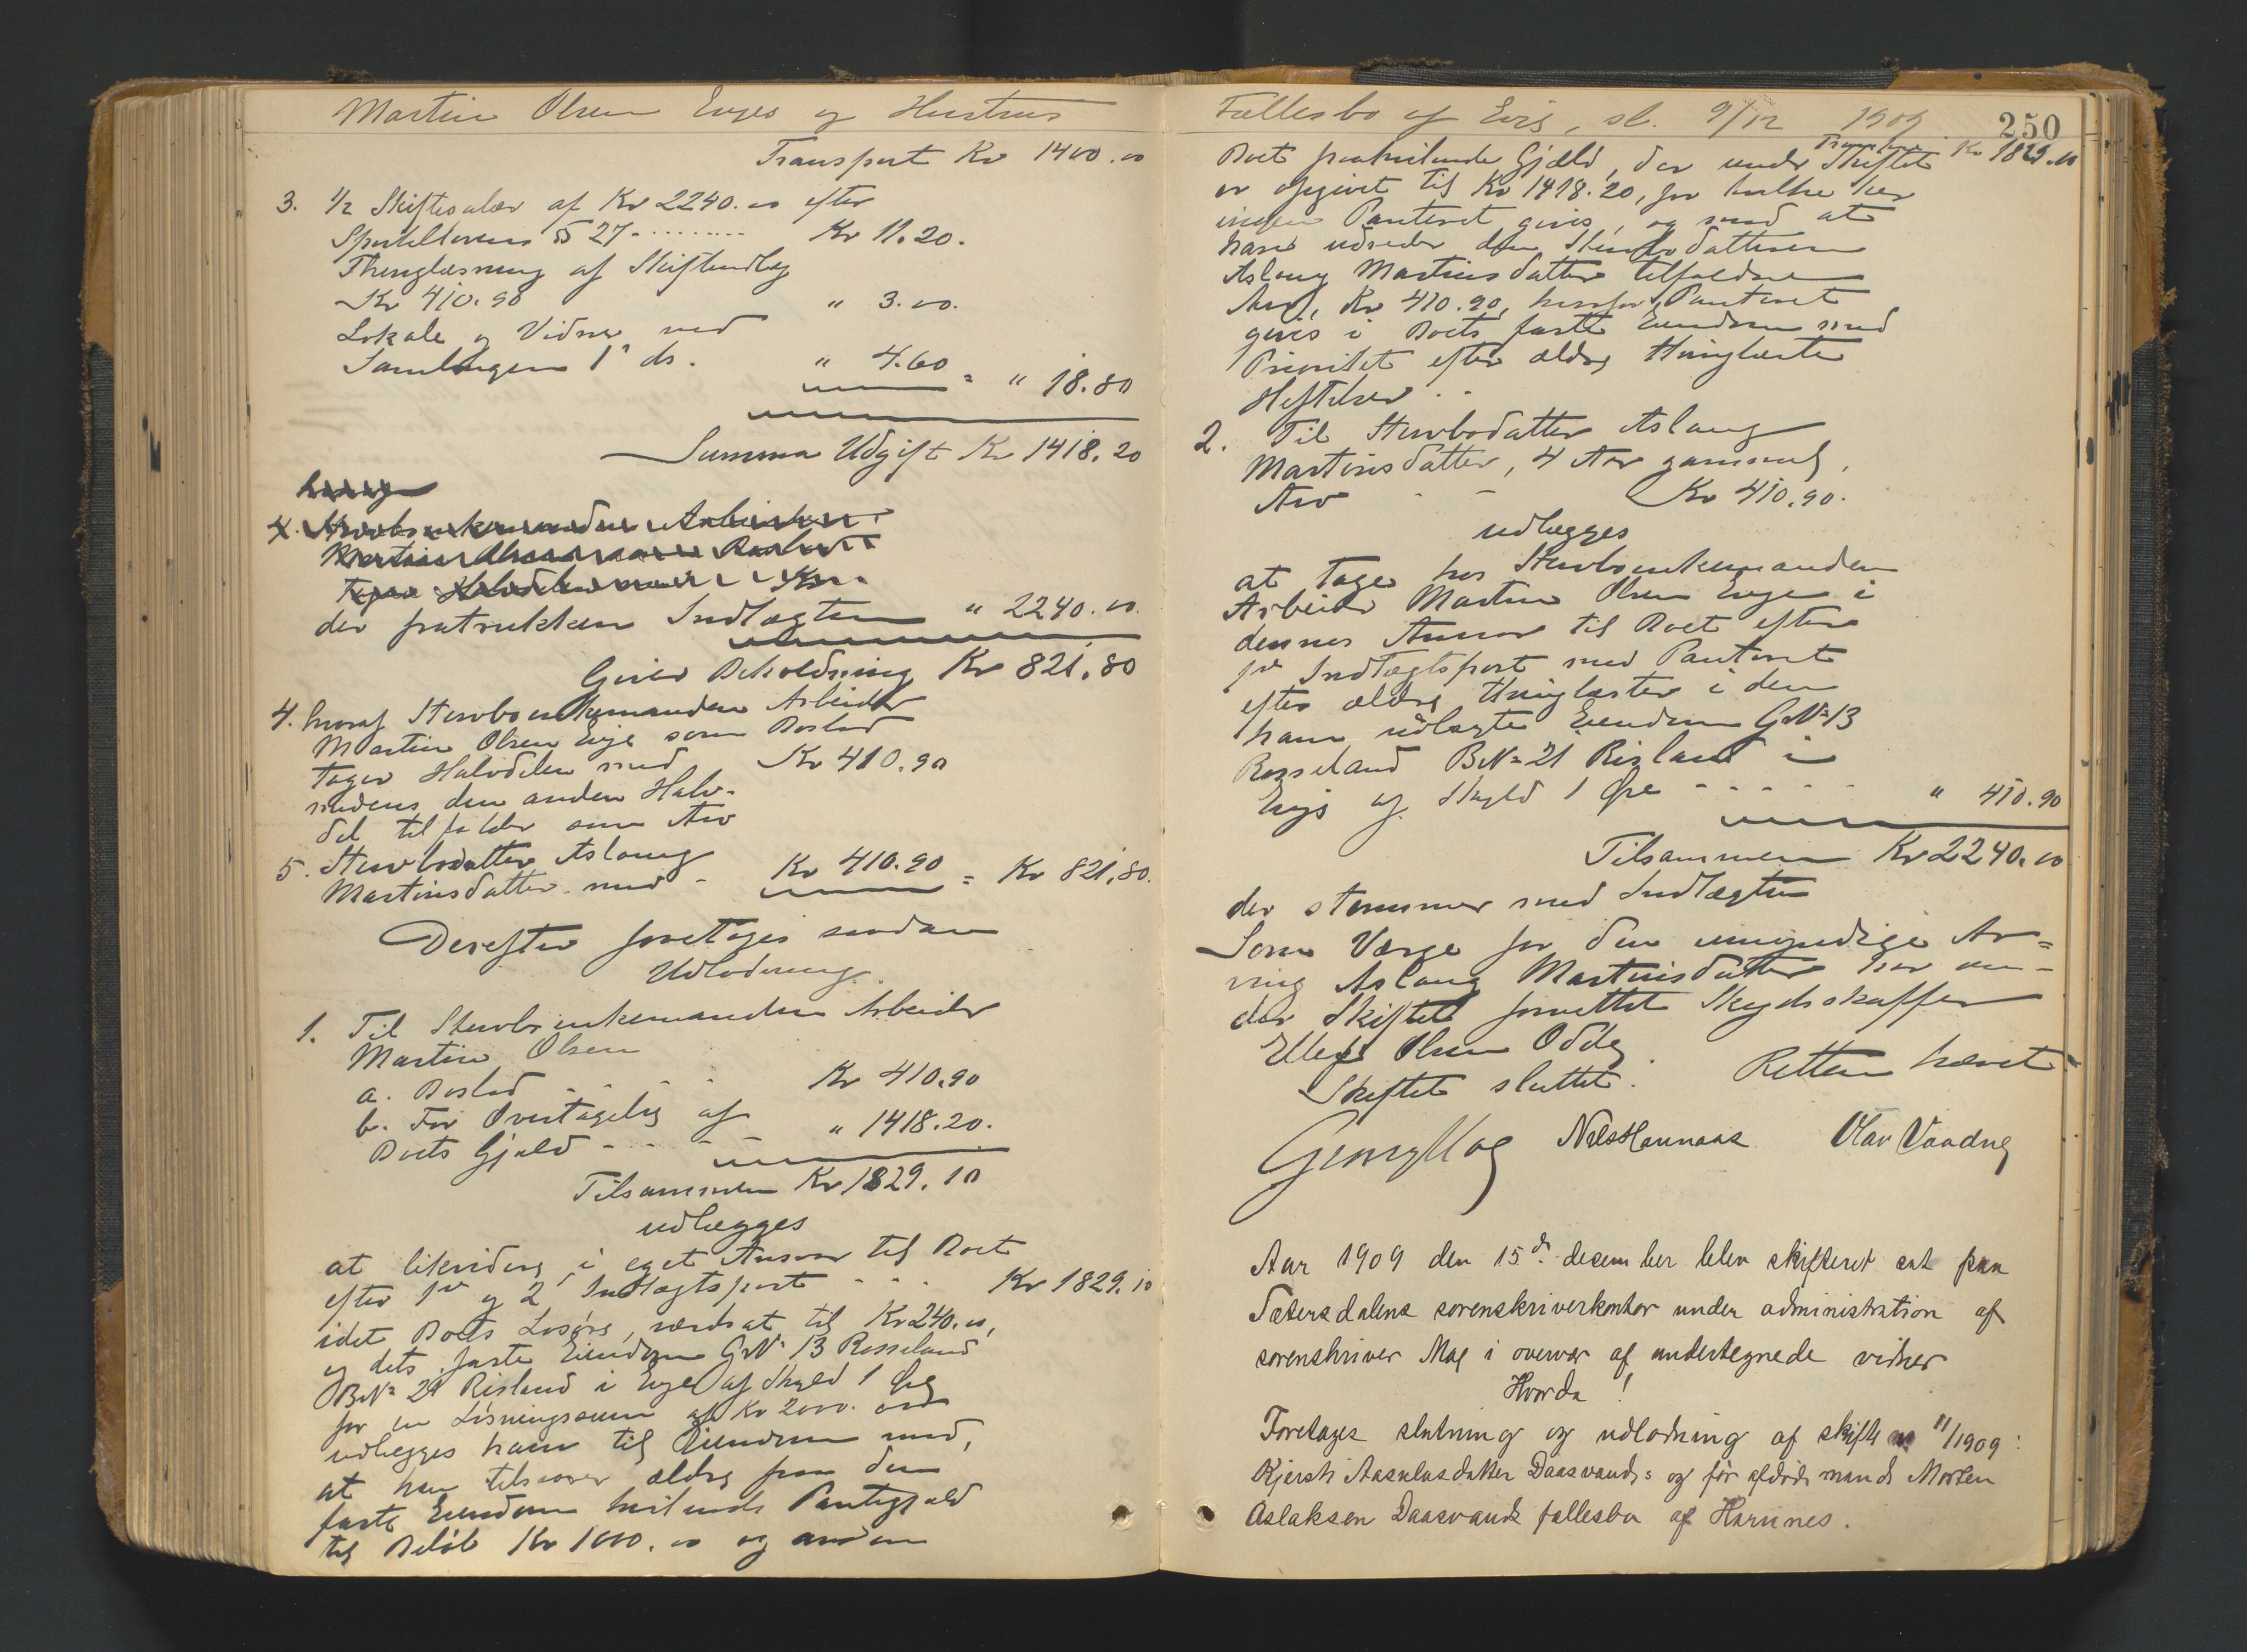 Martin Olsen Evjes og Hustrus
Transport Kr 1400.00
3. 1/2 Skiftesalær af Kr 2240.00 efter
Sportellovens § 27 - Kr 11.20.
Thinglæsning af Skifteudlæg
Kr 410.90 " 3.00.
Lokale og Vidner ved
Samlingen 1 ds. " 4.60 = " 18.80
Summa Udgift Kr 1418.20
4.
der fratrukken Indtægten " 2240.00
Giver Beholdning Kr 821.80
4. hvoraf Stervboenkemanden Arbeider
Martin Olsen Evje som Boslod
tager Halvdelen med Kr 410.90
medens den anden Halv-
del tilfalder som Arv
5. Stervbodatter Aslaug
Martinsdatter med - Kr 410.90 = Kr 821.80.
Derefter foretoges saadan
Udlodning
1. Til Stervboenkemanden Arbeider
Martin Olsen
a. Boslod - - - Kr 410.90
b. For Overtagelse af
Boets Gjæld - - - - " 1418.20.
Tilsammen Kr 1829.10
udlægges
at likvidere i eget Ansvar til Boet
efter 1 og 2 Indtægtspost - - - Kr 1829.10
idet Boets Løsøre, værdsat til Kr 240.00,
og dets faste Eiendom GrNo 13 Rosseland
BNo 21 Risland i Evje af Skyld 1 Øre
for en Løsningssum af Kr 2000.00
udlægges ham til Eiendom mod,
at han tilsvarer ældre paa den
faste Eiendom hvilende Pantegjæld
til Beløb Kr 1000.00 og anden
Fællesbo af Evje, sl. 9/12 1909
250
Transport Kr 1829.10
Boet paahvilende Gjæld, der under Skiftet
er opgivet til Kr 1418.20, for hvilke her
ingen Panteret gives, og mod at
han udreder den Stervbodatteren
Aslaug Martinsdatter tilfaldne
Arv, Kr 410.90, hvorfor Panteret
gives i Boets faste Eiendom med
Prioritet efter ældre thinglæste
Heftelser.
2. Til Stervbodatter Aslaug
Martinsdatter, 4 Aar gammel,
Arv - - Kr 410.90.
udlægges
at tage hos Stervboenkemanden
Arbeider Martin Olsen Evje i
dennes Ansvar til Boet efter
1ste Indtægtspost med Panteret
efter ældre thinglæster i den
ham udlagte Eiendom GrNo 13
Rosseland BNo 21 Risland i
Evje af Skyld 1 Øre - - - - - " 410.90
Tilsammen Kr 2240.00
der stemmer med Indtægten
Som Værge for den umyndige Ar=
ving Aslaug Martinsdatter har un-
der Skiftet forrettet Skydsskaffer
Ellef Olsen Odde.
Skiftet sluttet. Retten hævet
Georg Mog Nils Hannaas Olav Vaadne
Aar 1909 den 15de desember blev skifteret sat paa
Sætersdalens sorenskriverkontor under administration af
sorenskriver Mog i overvær af undertegnede vidner
Hvorda!
Foretages slutning og udlodning af skifte 11/1909:
Kjersti Aasulvsdatter Daasvands og før afdøde mand Morten
Aslaksen Daasvands fællesbo af Hornnes.